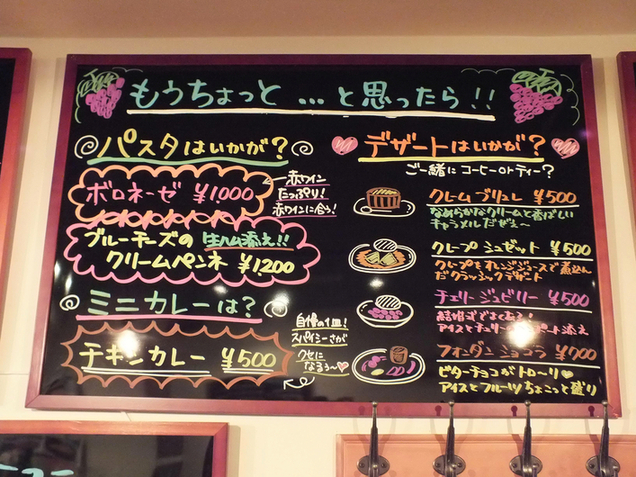 もうちょっと …と思ったら!!
パスタはいかが?
ボロネーゼ ¥1,000
赤ワイン
たっぷり!
赤ワインに合う!
ブルーチーズの 生ハム添え!!
クリームペンネ ¥1,200
ミニカレーは?
チキンカレー ¥500
自慢の1皿!
スパイシーさが
クセに
なるぅ〜
デザートはいかが?
ご一緒に コーヒーorティー?
クレームブリュレ ¥500
なめらかなクリームと香ばしい
キャラメルだぜぇ〜
クレープシュゼット ¥500
クレープをオレンジジュースで煮込ん
だクラッシックデザート
チェリージュビリー ¥500
結婚式でよくある!
アイスとチェリーの
添え
フォンダンショコラ ¥700
ビターチョコがトロ〜リ
アイスとフルーツちょこっと盛り